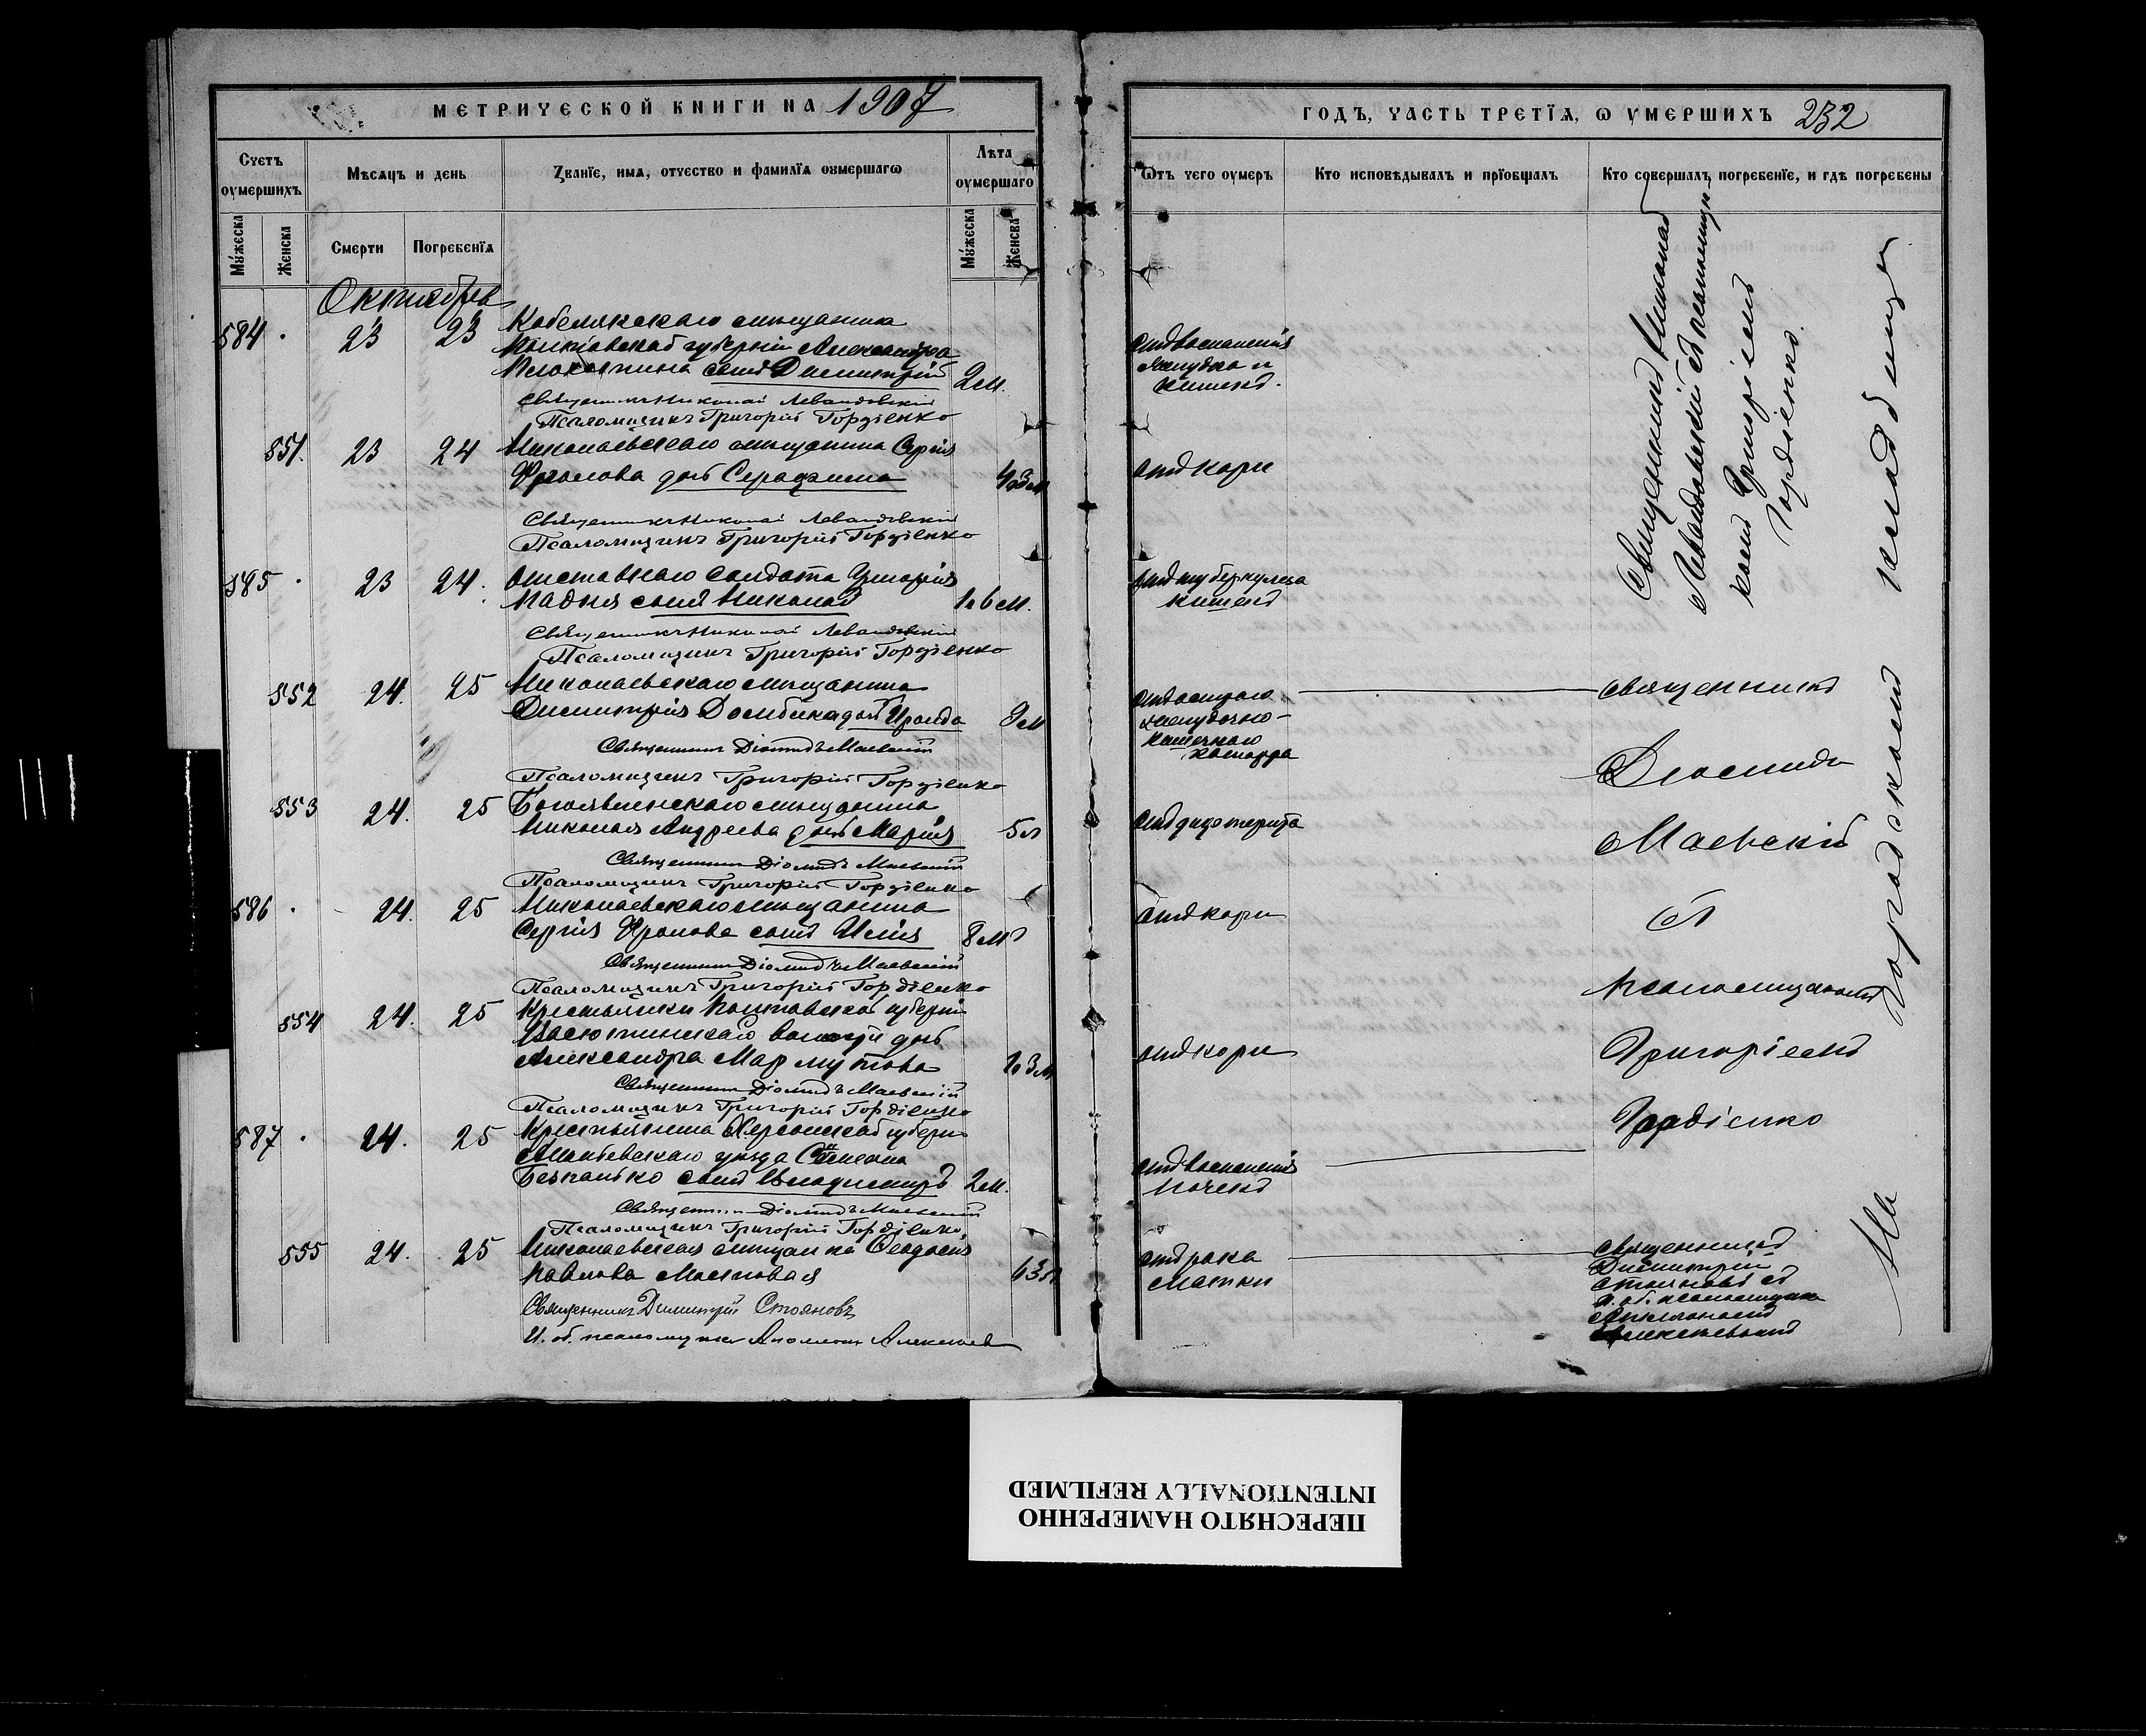 МЕТРИЧЕСКОЙ КНИГИ НА 1907
Счетъ оумершихъ
Мѣсяцъ и день
Званїе, имя, отчество и фамилїя оумершагѡ
Лѣта оумершаго
Мужеска
Женска
Смерти
Погребенїя
Мужеска
Женска
Октябрь
584 23 23 Кобелякскаго мѣщанина
Полтавской губерніи Александра
сынъ Димитрій 2 м.
Священникъ Николай Левандовскій
Псаломщикъ Григорій Гордіенко
551. 23 24 Николаевскаго мѣщанина Сергія
Фролова дочь Серафима
Священникъ Николай Левандовскій
Псаломщикъ Григорій Гордіенко
585 23 24. отставного солдата Григорія
сынъ Николай 1 г. 6 м.
Священникъ Николай Левандовскій
Псаломщикъ Григорій Гордіенко
552 24. 25 Николаевскаго мѣщанина
Димитрія дочь Ираида 9 м
Священникъ Діомидъ Маевскій
Псаломщикъ Григорій Гордіенко
553 24. 25 Богоявленскаго мѣщанина
Николая Андреева дочь Марія 5 л
Священникъ Діомидъ Маевскій
Псаломщикъ Григорій Гордіенко
586 24. 25 Николаевскаго мѣщанина
Сергія Фролова сынъ Илія 8 м
Священникъ Діомидъ Маевскій
Псаломщикъ Григорій Гордіенко
554 24. 25 Крестьянки Полтавской губерніи
волости дочь
Александра Мармутова 1 г. 3 м
Священникъ Діомидъ Маевскій
Псаломщикъ Григорій Гордіенко
587 24. 25 Крестьянина Херсонской губерніи
Ананьевскаго уѣзда Симеона
Безпалько сынъ Владимиръ 2 м.
Священникъ Діомидъ Маевскій
Псаломщикъ Григорій Гордіенко
555 24. 25 Николаевская мѣщанка Феодосія
Павлова 63 л
Священникъ Димитрій Стояновъ
И. об. псаломщика Алексѣевъ
ГОДЪ, ЧАСТЬ ТРЕТЇЯ, Ѡ УМЕРШИХЪ 232
Ѿтъ чего оумеръ
Кто исповѣдывалъ и прїобщалъ
Кто совершалъ погребенїе, и гдѣ погребены
отъ воспаленія
желудка и
кишекъ.
отъ кори
отъ туберкулеза
кишекъ
отъ остраго
желудочно-
кишечнаго
катарра
отъ дифтерита
отъ кори
отъ кори
отъ воспаленія
почекъ
отъ рака
матки
Священникъ Николай
Левандовскій съ псаломщи-
комъ Григоріемъ
Гордіенко.
священникъ
Діомидъ
Маевскій
съ
псаломщикомъ
Григоріемъ
Гордіенко
священникъ
Димитрій
Стояновъ съ
и. об. псаломщика
Алексѣевымъ
На городскомъ кладбищѣ
ПЕРЕСНЯТО НАМЕРЕННО
INTENTIONALLY REFILMED